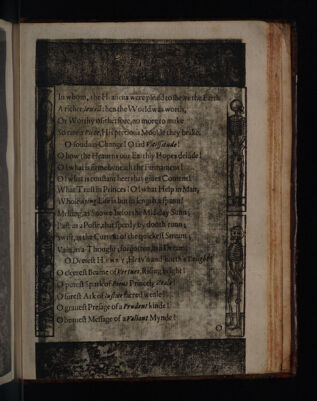 In whom, the Heau'ns were pleas'd to shewe the Earth
A richer Iewell then the World was worth,
Or Worthy of: therfore, no more to make
So rare a Piece, His precious Moold they brake.
O soudaine Change! O sad Vicissitude!
O how the Heau'ns our Earthly Hopes delude!
O! what is firme beneath the Firmament!
O! what is constant heer that giues Content!
What Trust in Princes! O! what Help in Man,
Whose Life is but in length a span!
Melting, as Snowe before the Mid-day Sunn;
Past, as a Poste, that speedy by dooth runn;
Swift, as the Current of the quickest Stream;
Vain, as a Thought; forgotten, as a Dream.
O Deerest HENRY, Heav'n and Earth's Delight!
O cleerest Beame of Vertues, Rising bright!
O purest Spark of Pious Princely Zeale!
O surest Ark of Iustice sacred weale!
O grauest Presage of a Prudent kinde!
O brauest Message of a Valiant Mynde!
O